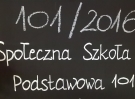 101/2016
Społeczna Szkoła
Podstawowa 101